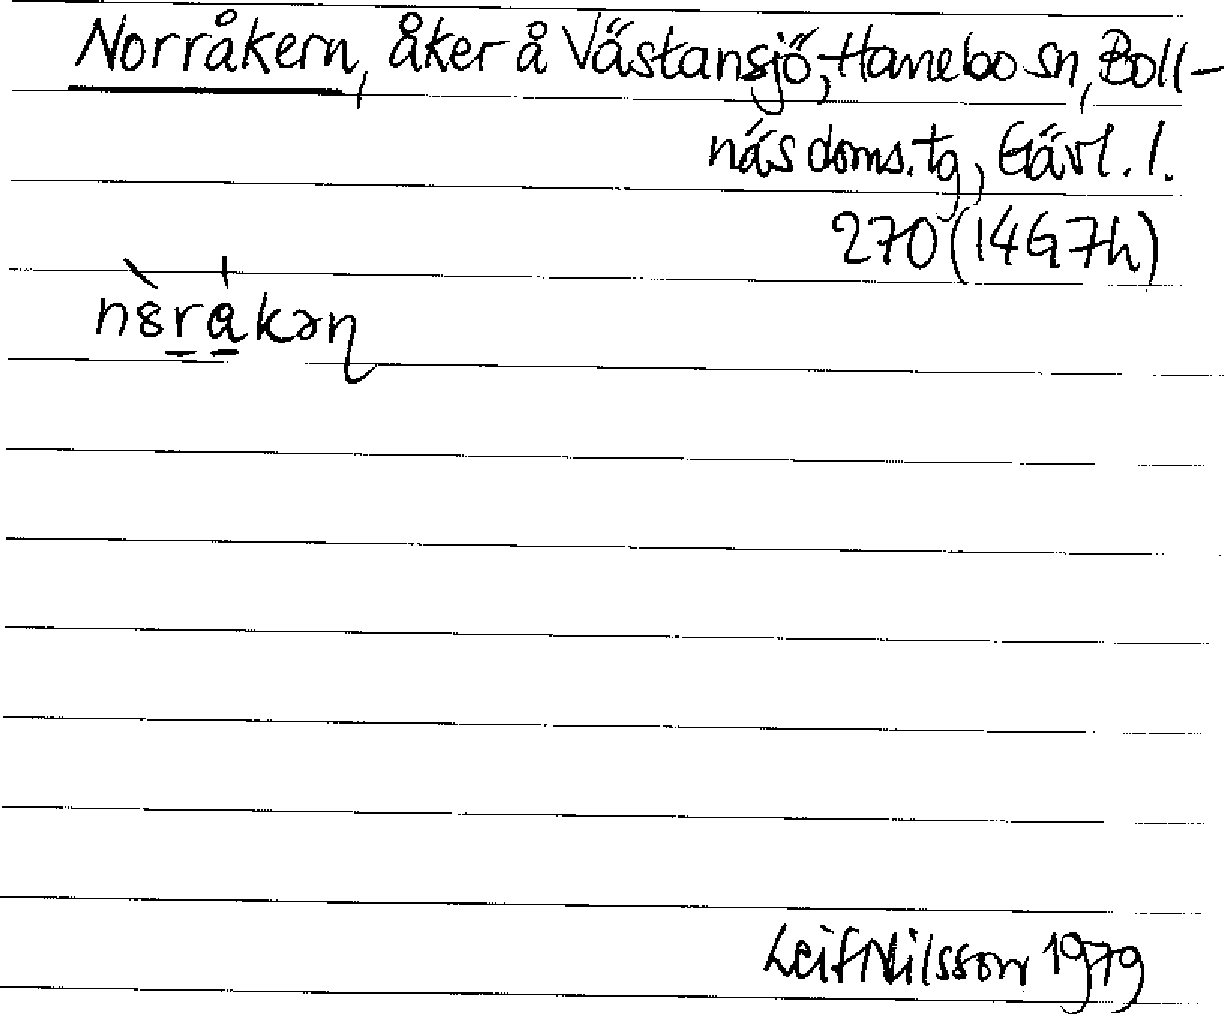 Norråkern, åker å Västansjö, Hanebo sn, Boll-
näs doms.tg, Gävl. l.
270 (14G7h)
nèrȧkəɳ
Leif Nilsson 1979